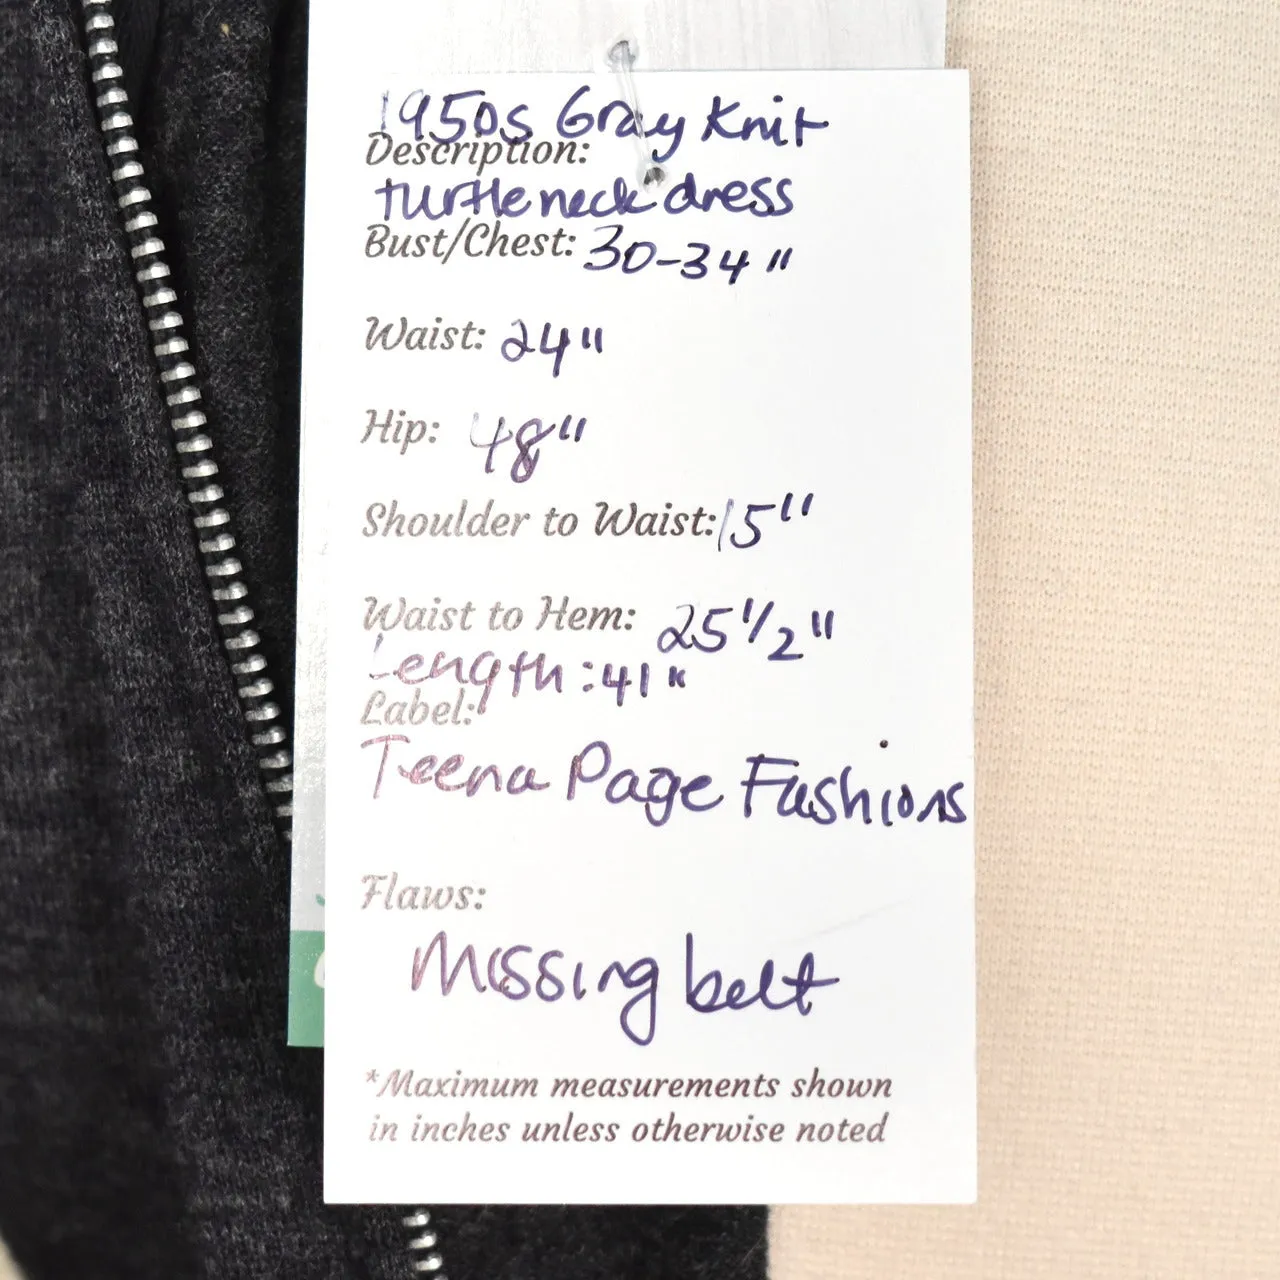 1950s Gray Knit
Description:
turtleneck dress
Bust/Chest: 30-34"
Waist: 24"
Hip: 48"
Shoulder to Waist: 15"
Waist to Hem: 25 1/2"
Length: 41"
Label:
Teena Page Fashions
Flaws:
Missing belt
*Maximum measurements shown
in inches unless otherwise noted